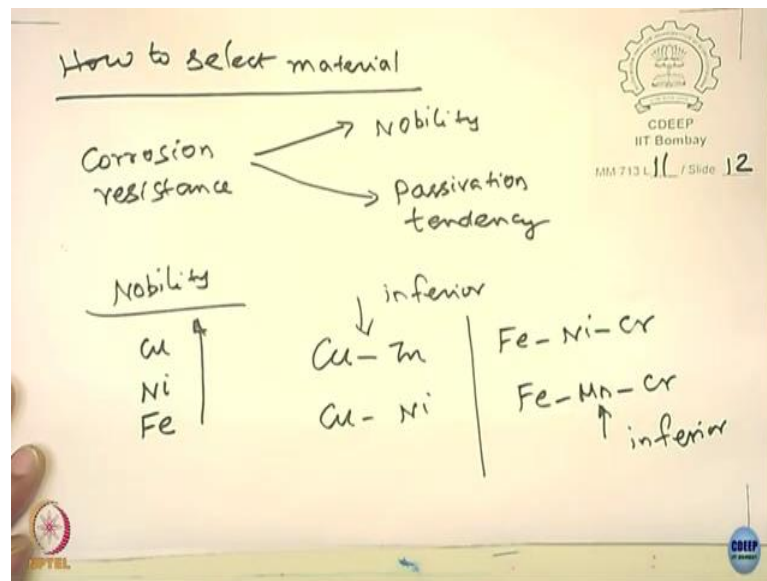 How to select material
CDEEP
IIT Bombay
MM 713 L 11 / Slide 12
Corrosion resistance
Nobility
Passivation tendency
Nobility
Cu
Ni
Fe
inferior
Cu - Zn
Cu - Ni
Fe - Ni - Cr
Fe - Mn - Cr
inferior
NPTEL
CDEEP
IIT BOMBAY